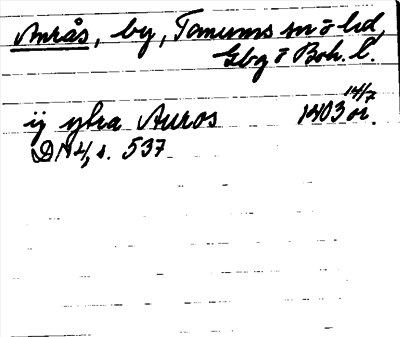 Anrås, by, Tanums sn o hd,
Gbg o Boh. l.
ij ytra Auros 1403 14/7 or.
DN 4, s. 537